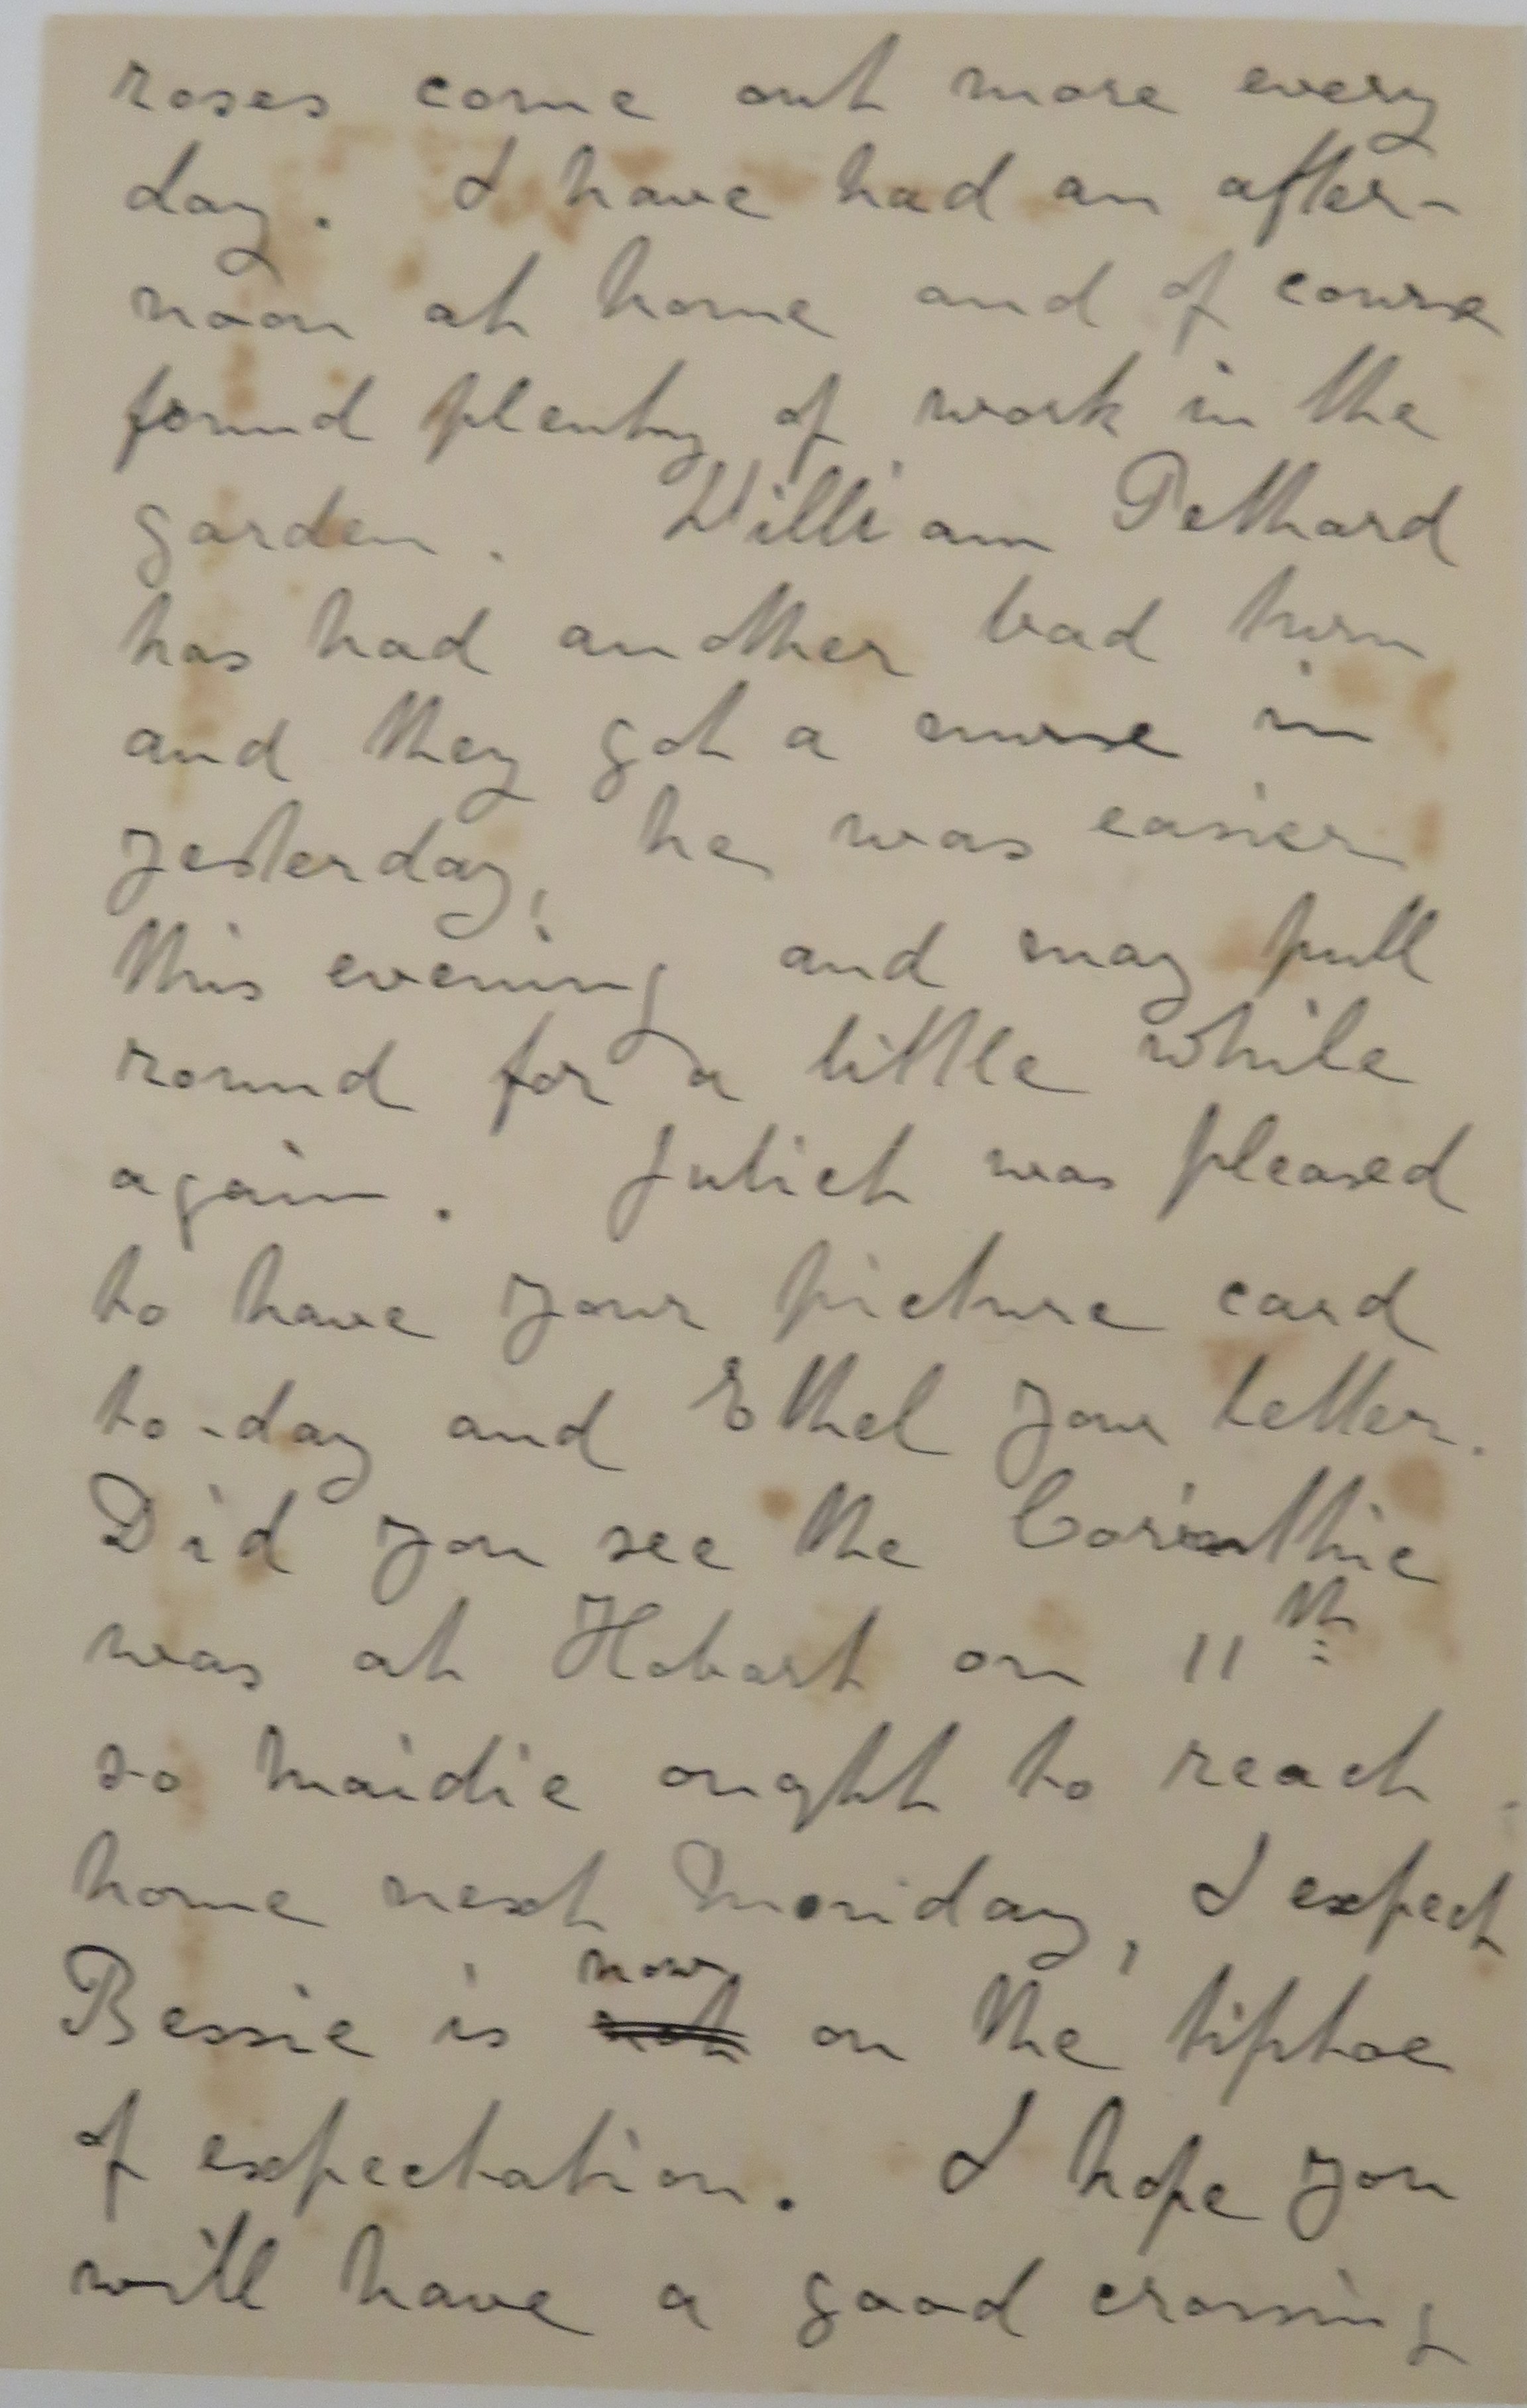 roses come out more every
day. I have had an after-
noon at home and of course
found plenty of work in the
garden. William Pethard
has had another bad turn
and they got a nurse in
yesterday, he was easier
this evening and may pull
round for a little while
again. Juliet was pleased
to have your picture card
to-day and Ethel your letter.
Did you see the Corinthic
was at Hobart on 11th
so Maidie ought to reach
home next Monday, I expect
Bessie is not now on the tiptoe
of expectation. I hope you
will have a good crossing